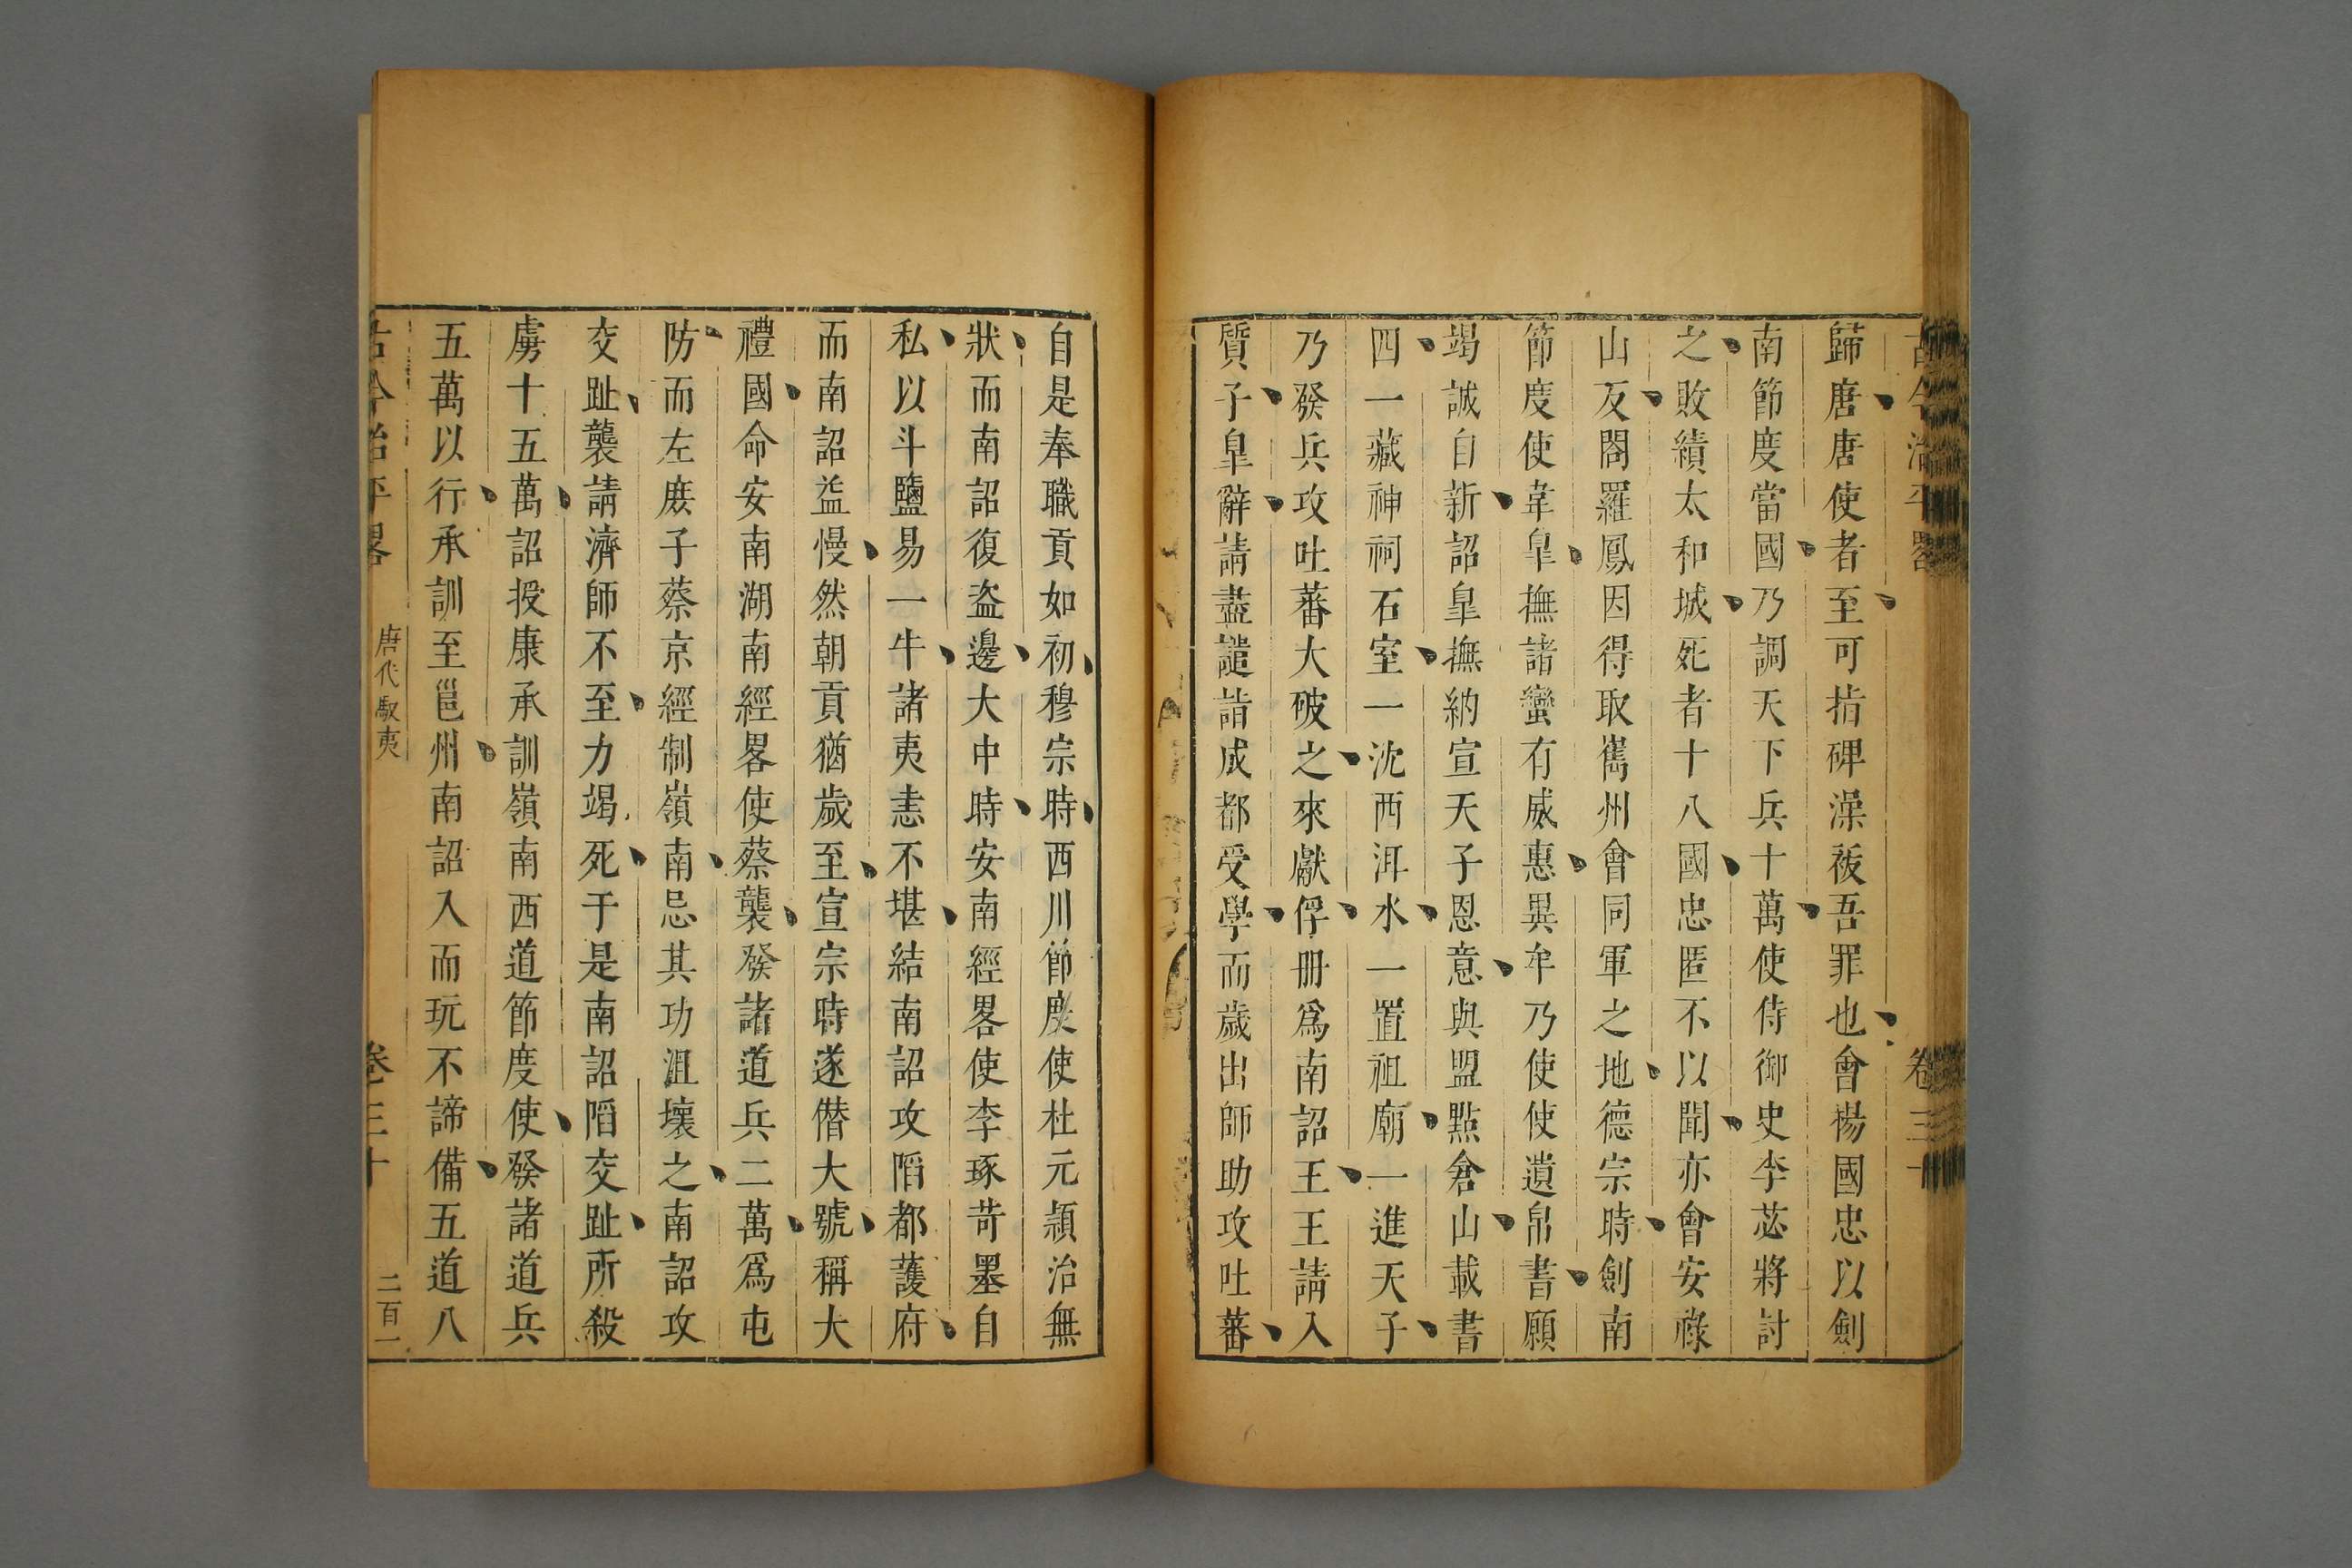 古今治平畧
卷三十
歸唐唐使者至可指碑澡祓吾罪也會楊國忠以劍
南節度當國乃調天下兵十萬使侍御史李苾將討
之敗績太和城死者十八國忠匿不以聞亦會安祿
山反閤羅鳳因得取嶲州會同軍之地德宗時劍南
節度使韋臯撫諸蠻有威惠異牟乃使使遺帛書願
竭誠自新詔臯撫納宣天子恩意與盟點倉山載書
四一藏神祠石室一沈西洱水一置祖廟一進天子
乃發兵攻吐蕃大破之來獻俘册爲南詔王王請入
質子臯辭請盡譴詣成都受學而歲出師助攻吐蕃
自是奉職貢如初穆宗時西川節度使杜元頴治無
狀而南詔復盗邊大中時安南經畧使李琢苛墨自
私以斗鹽易一牛諸夷恚不堪結南詔攻䧟都護府
而南詔益慢然朝貢猶歲至宣宗時遂僭大號稱大
禮國命安南湖南經畧使蔡襲發諸道兵二萬爲屯
防而左庻子蔡京經制嶺南忌其功沮壞之南詔攻
交趾襲請濟師不至力竭死于是南詔䧟交趾所殺
虜十五萬詔授康承訓嶺南西道節度使發諸道兵
五萬以行承訓至邕州南詔入而玩不諦備五道八
古今治平畧
唐代馭夷
卷三十
二百一